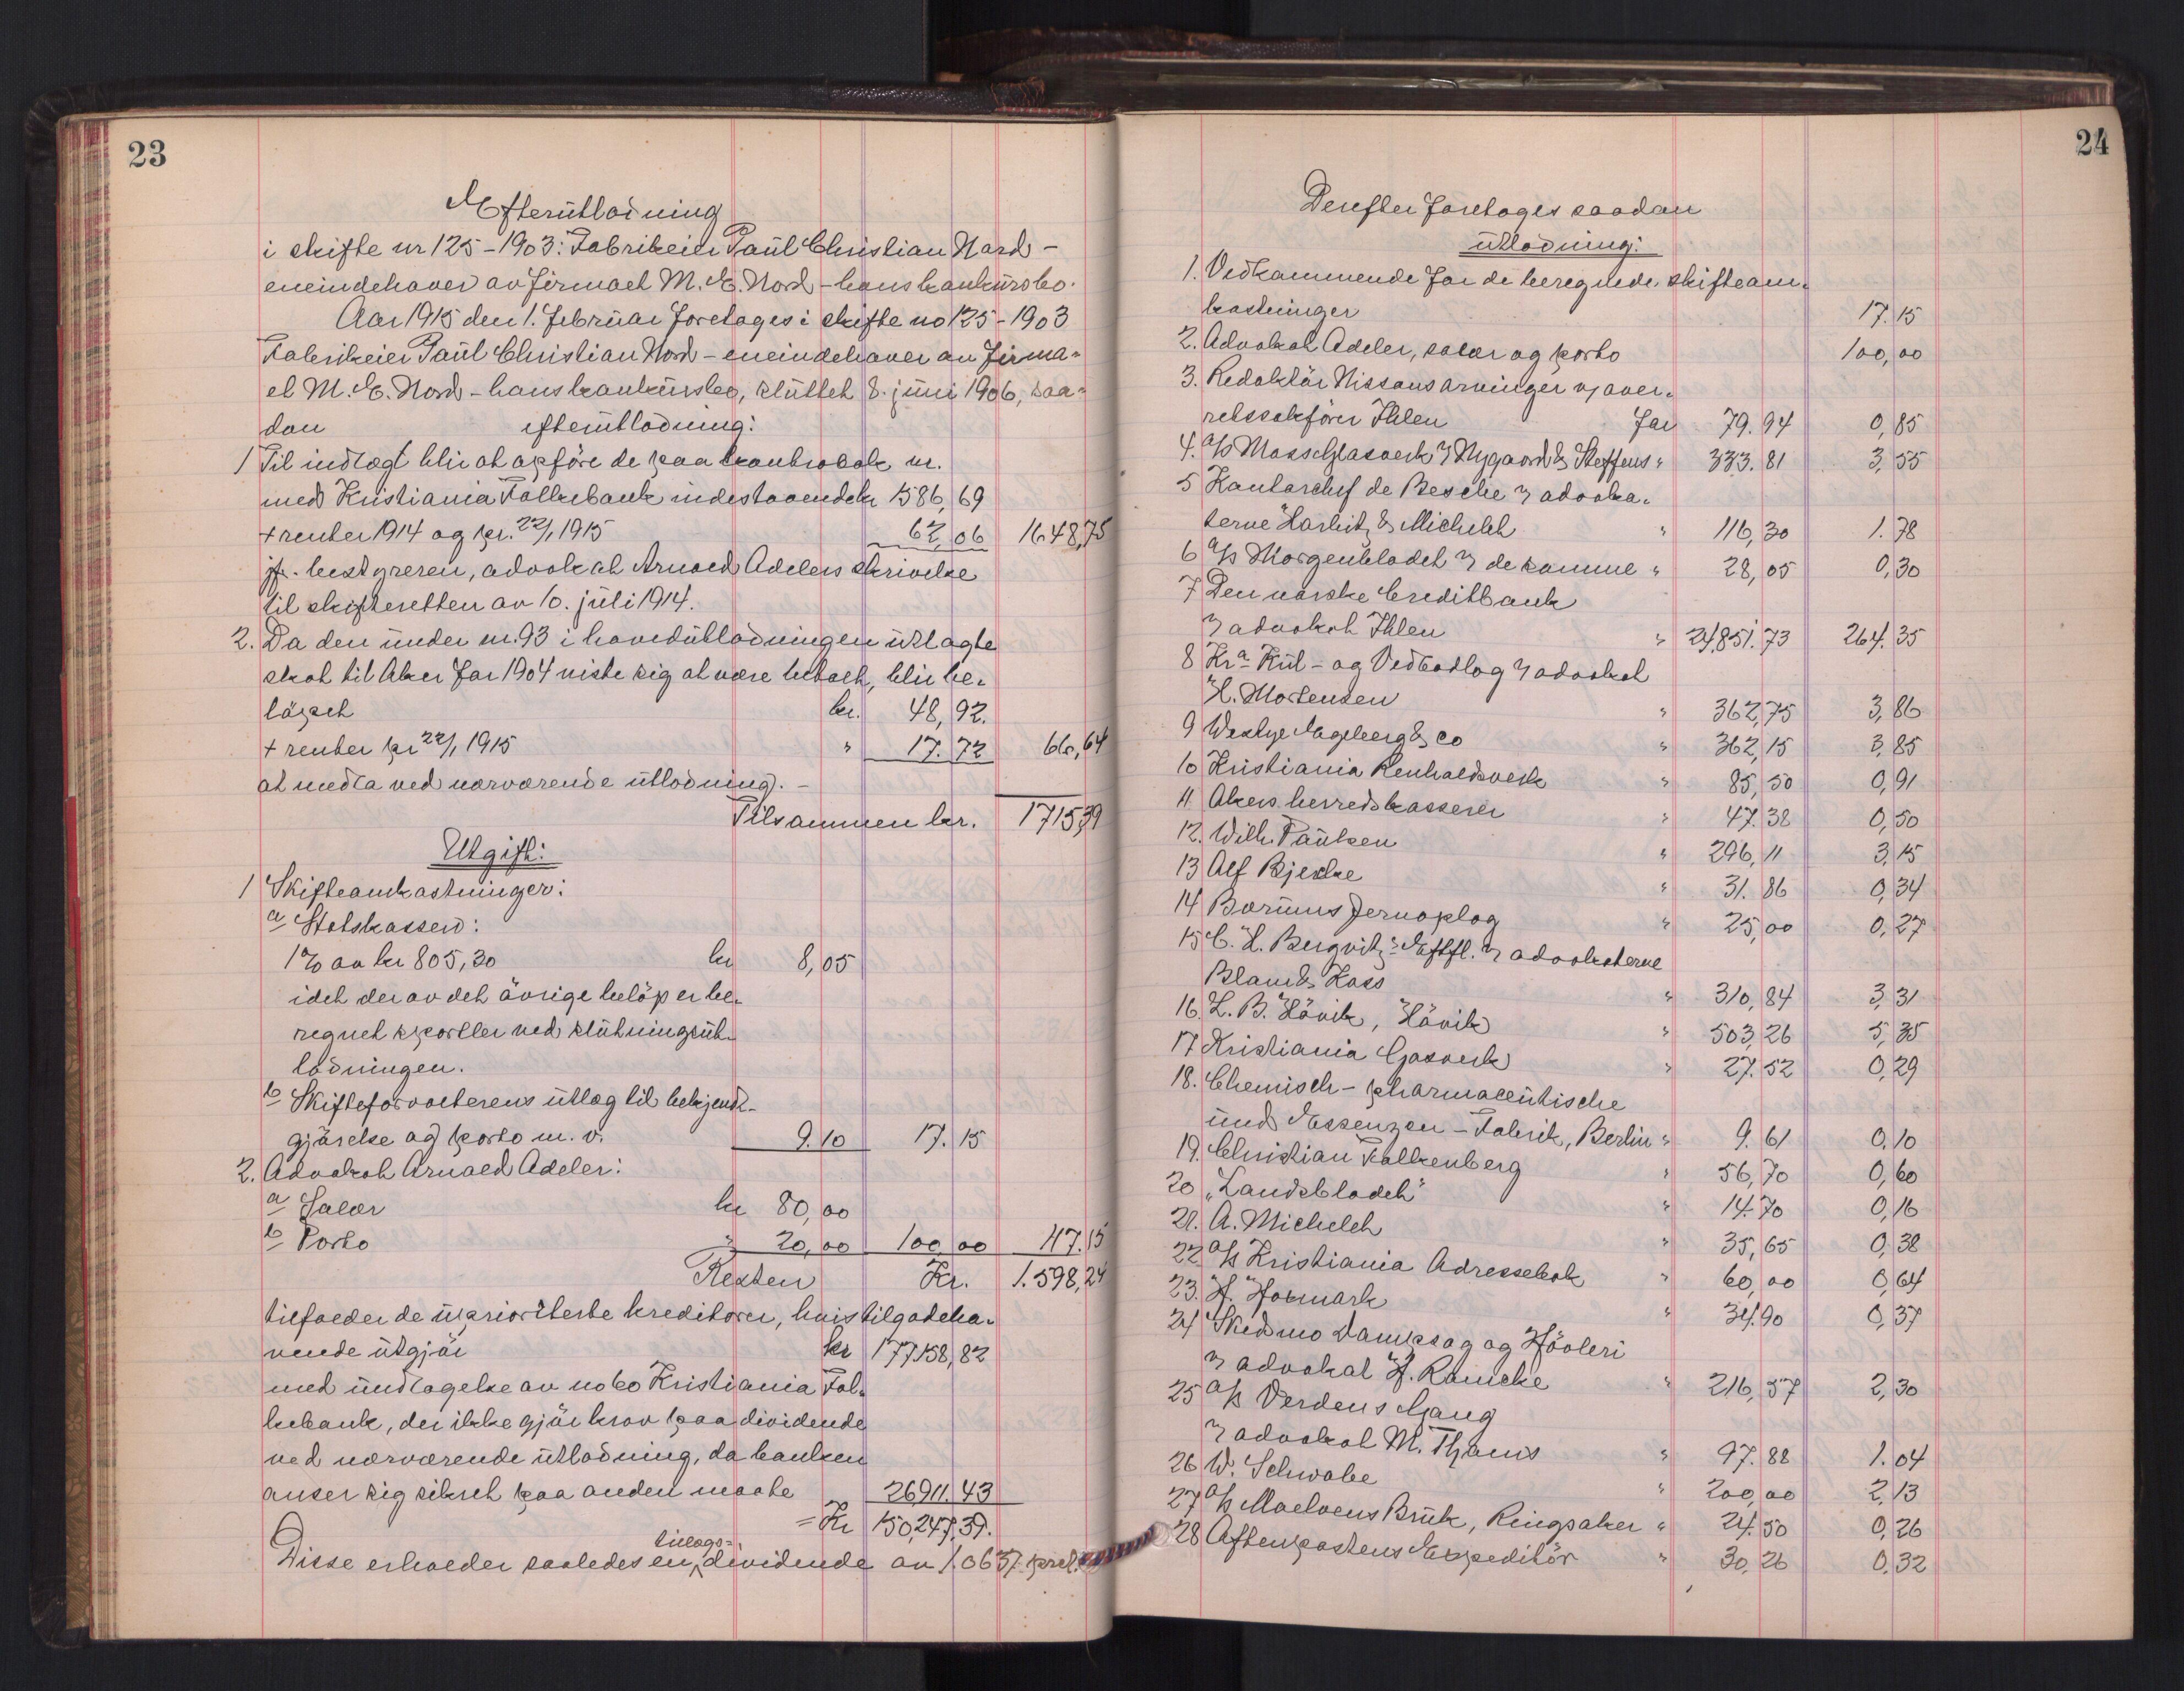 23
Efterutlodning
i skifte nr 125-1903: Fabrikeier Paul Christian Nord -
eneindehaver av firmaet M. E. Nord - hans konkursbo.
Aar 1915 den 1. februar foretoges i skifte no 125-1903
Fabrikeier Paul Christian Nord - eneindehaver av firma=
et M. E. Nord - hans konkursbo, sluttet 8. juni 1906, saa=
dan efterutlodning:
1 Til indtægt blir at opföre de paa kontrabok nr.
med Kristiania Folkebank indestaaende kr 1586,69
+ renter 1914 og pr. 22/1 1915 62,06 1648,75
jf. bestyreren, advokat Arnold Adelers skrivelse
til skifteretten av 10. juli 1914.
2. Da den under nr. 93 i hovedutlodningen utlagte
skat til Aker for 1904 viste sig at være betalt, blir be-
löpet kr. 48,92.
+ renter pr 22/1 1915 " 17.72 66,64
at medta ved nærværende utlodning. -
Tilsammen kr. 1715,39
Utgift:
1 Skifteomkostninger:
a Statskassen:
1% av kr 805,30 kr 8,05
idet der av det övrige belöp er be-
regnet sportler ved slutningsut-
lodningen.
b Skifteforvalterens utlæg til bekjendt-
gjörelse og porto m. v. 9.10 17.15
2. Advokat Arnold Adeler:
a Salær kr 80,00
b Porto " 20,00 100,00 117.15
Resten Kr. 1.598,24
tilfalder de uprioriterte kreditorer, hvis tilgodeha-
vende utgjör kr 177.158,82
med undtagelse av no 60 Kristiania Fol-
kebank, der ikke gjör krav paa dividende
ved nærværende utlodning, da banken
anser sig sikret paa anden maate 26911.43
= Kr 150,247,39.
tillægs=
Disse erholder saaledes en dividende av 1.0637 prct.
24
Derefter foretoges saadan
utlodning:
1. Vedkommende for de beregnede skifteom-
kostninger 17.15
2. Advokat Adeler, salær og porto 100,00
3. Redaktör Nissens arvinger v/ over-
retssakförer Ihlen for 79.94 0,85
4. A/S Moss Glasverk v/ Nygaard & Steffens " 333.81 3,55
5 Kontorchef de Besche v/ advoka-
terne Harbitz & Michelet " 116,30 1.78
6 A/S Morgenbladet v/ de samme " 28,05 0,30
7 Den norske Creditbank
v/ advokat Ihlen " 24,851.73 264.35
8 Kra Kul- og Vedoplag v/ advokat
H. Mortensen " 362,75 3,86
9 Westye Egeberg & Co " 362,15 3,85
10 Kristiania Renholdsverk " 85,50 0,91
11 Akers herredskasserer " 47.38 0,50
12. Wilh. Paulsen " 296,11 3,15
13 Alf Bjercke " 31.86 0,34
14 Bærums Jernoplag " 25,00 0,27
15 C. H. Bergvitz's Eftfl. v/ advokaterne
Blom & Koss " 310,84 3,31
16. L. B. Hövik, Hövik " 503,26 5,35
17 Kristiania Gasverk " 27.52 0,29
18. Chemisch - pharmaceutische
und Essenzen - Fabrik, Berlin " 9.61 0,10
19. Christian Falkenberg " 56,70 0,60
20 "Landsbladet" " 14.70 0,16
21. A. Michelet " 35,65 0,38
22 A/S Kristiania Adressebok " 60,00 0,64
23. H. Hormark " 34.90 0,37
24 Skedsmo Dampsag og Hövleri
v/ advokat H. Ramcke " 216,57 2,30
25 A/S Verdens Gang
v/ advokat M. Thams " 97.88 1.04
26 W. Schwabe " 200,00 2,13
27 A/S Moelvens Bruk, Ringsaker " 24.50 0,26
28 Aftenpostens Expeditör " 30,26 0,32